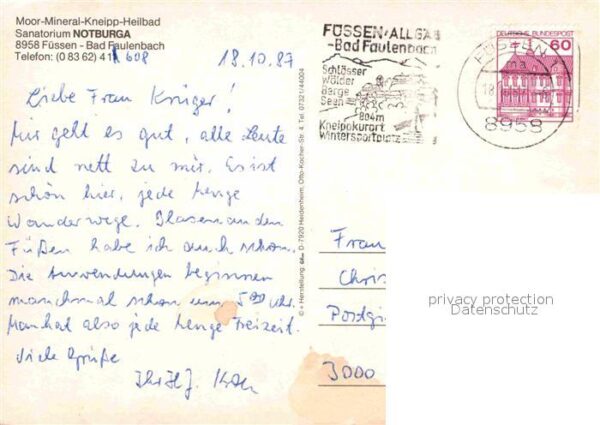 Moor-Mineral-Kneipp-Heilbad
Sanatorium NOTBURGA
8958 Füssen - Bad Faulenbach
Telefon: (0 83 62) 41 608
18.10.87
Liebe Frau Krüger!
Mir geht es gut, alle Leute
sind nett zu mir. Es ist
schön hier, jede Menge
Wanderwege. Blasen an den
Füßen habe ich auch schon.
Die Anwendungen beginnen
manchmal schon um 5 00 Uhr.
Man hat also jede Menge Freizeit.
Viele Grüße
Ihr H.J.
© + Herstellung D-7920 Heidenheim, Otto-Kocher-Str. 4, Tel. 07321/44004
FÜSSEN-ALLGÄ
-Bad Faulenbach
Schlösser
Wälder
Berge
Seen
804m
Kneippkurort
Wintersportplatz
FÜSSEN
8958
DEUTSCHE BUNDESPOST
60
Frau
Chris
Postgi
3000
privacy protection
Datenschutz